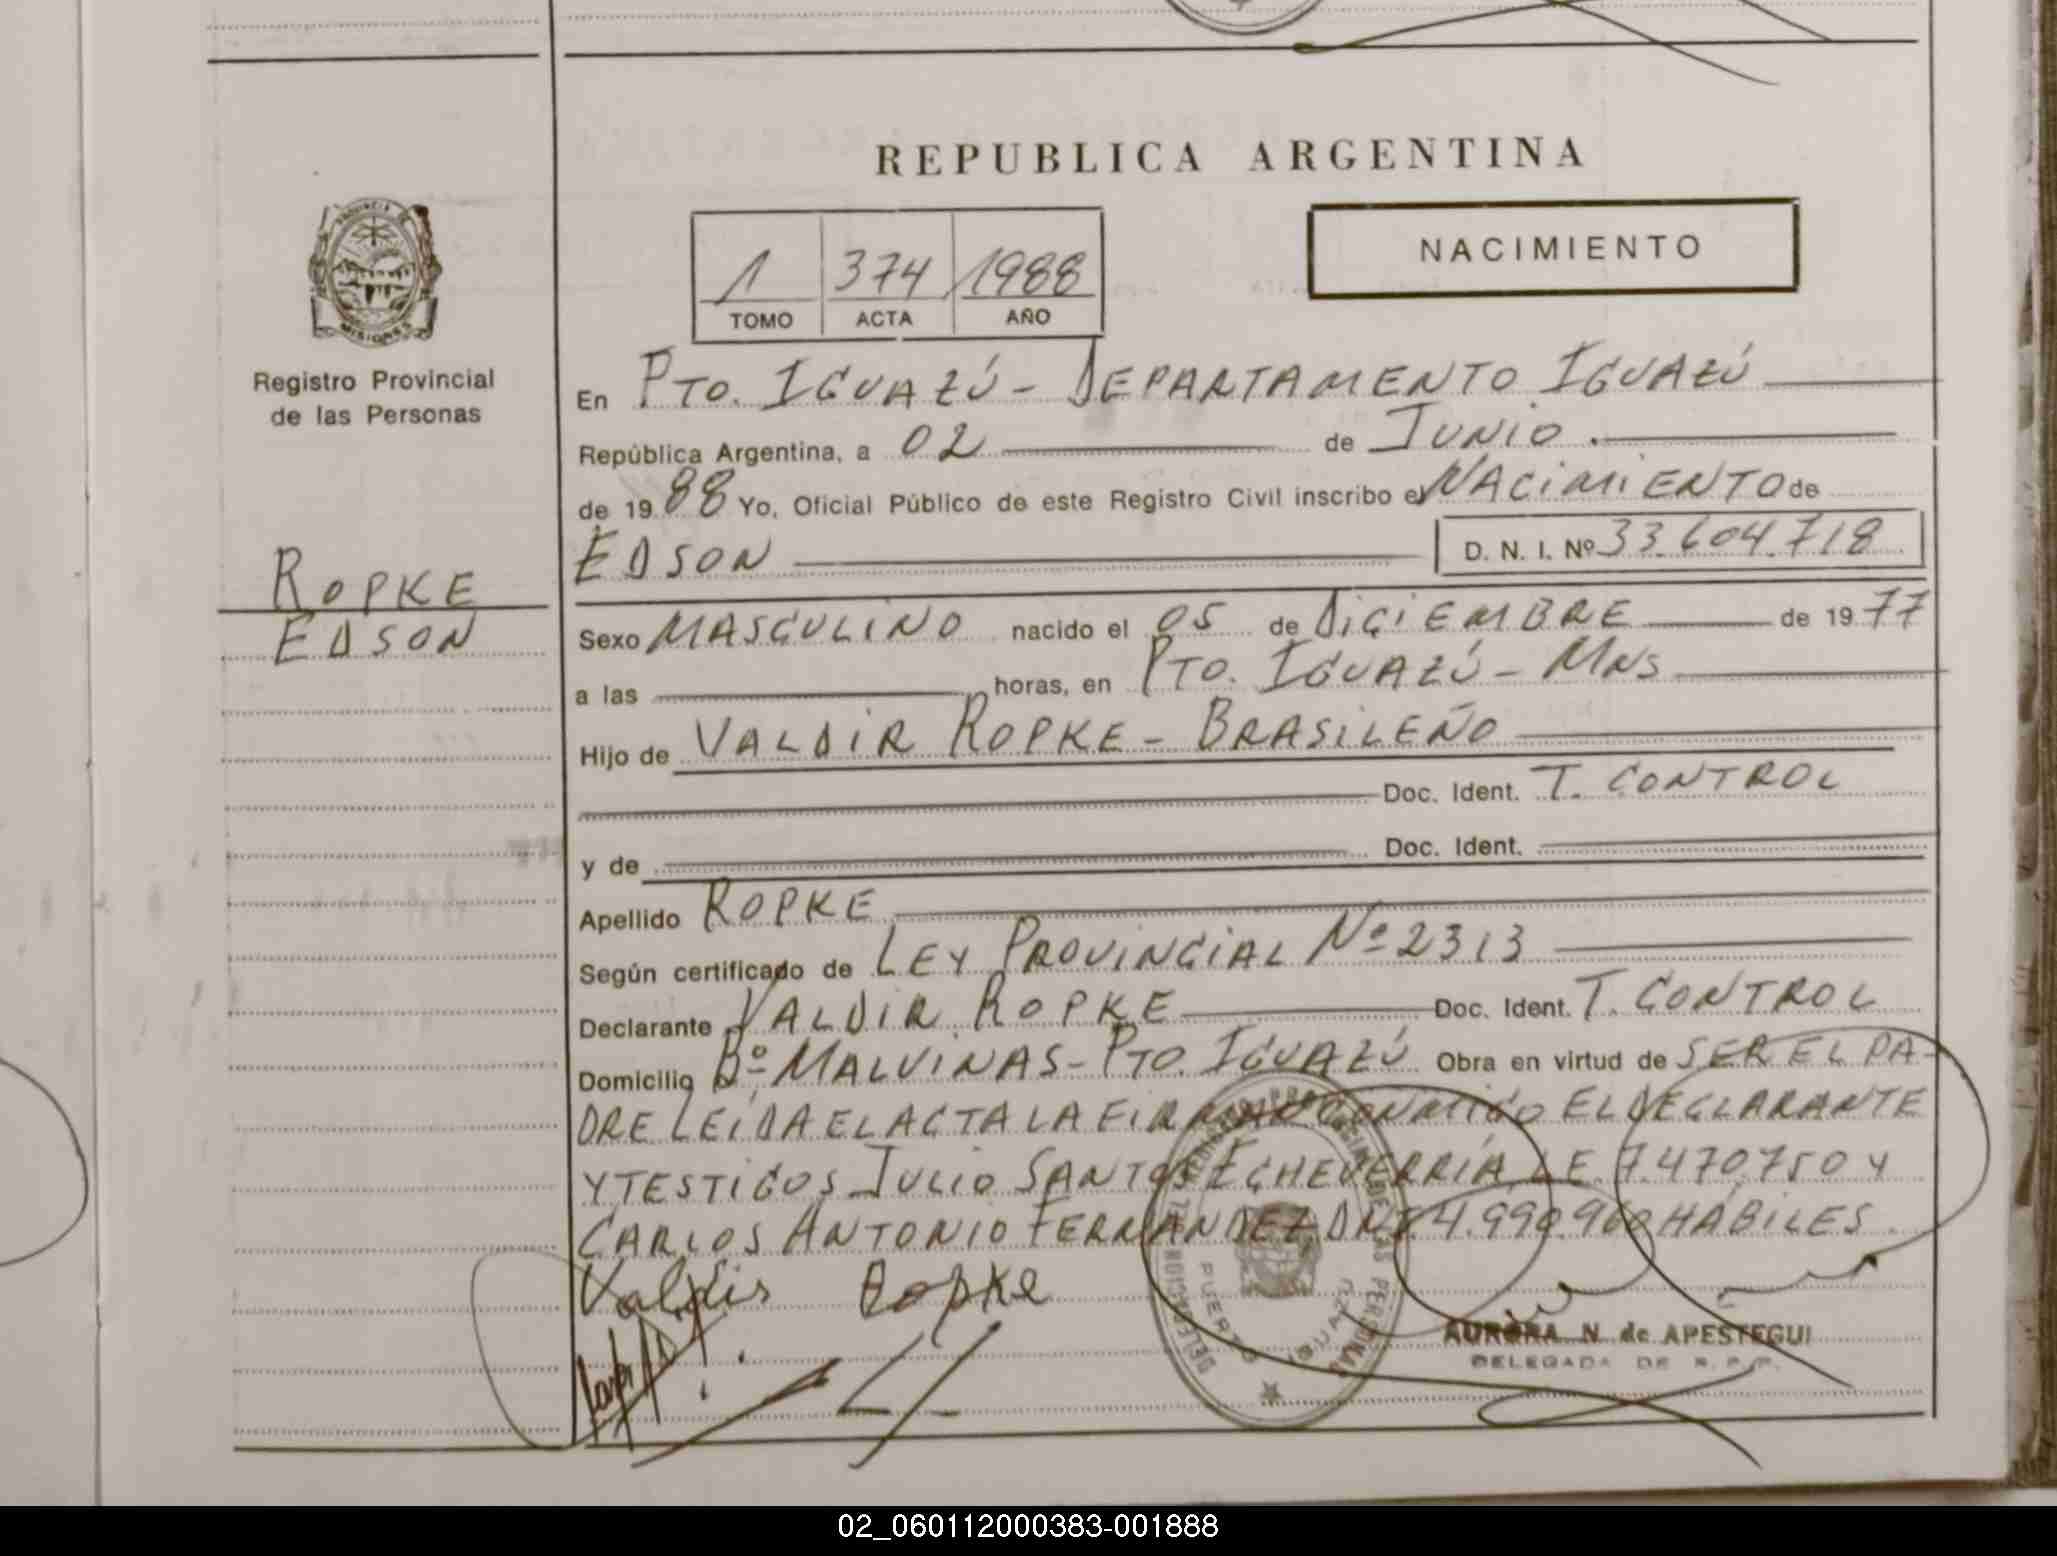 REPUBLICA ARGENTINA
NACIMIENTO
1 374 1988
TOMO ACTA AÑO
PROVINCIA DE
MISIONES
Registro Provincial
de las Personas
ROPKE
EDSON
En PTO. IGUAZÚ - DEPARTAMENTO IGUAZÚ
República Argentina, a 02 de JUNIO.
de 1988 Yo, Oficial Público de este Registro Civil inscribo el NACIMIENTO de
EDSON D. N. I. Nº 33.604.718
Sexo MASCULINO nacido el 05 de DICIEMBRE de 1977
a las horas, en PTO. IGUAZÚ - MNS
Hijo de VALDIR ROPKE - BRASILEÑO
Doc. Ident. T. CONTROL
y de Doc. Ident.
Apellido ROPKE
Según certificado de LEY PROVINCIAL Nº 2313
Declarante VALDIR ROPKE Doc. Ident. T. CONTROL
Domicilio Bº MALVINAS - PTO. IGUAZÚ Obra en virtud de SER EL PA-
DRE LEÍDA EL ACTA LA FIRMAN CONMIGO EL DECLARANTE
Y TESTIGOS JULIO SANTOS ECHEVERRÍA L.E. 7.470.750 Y
CARLOS ANTONIO FERNANDEZ D.N.I. 4.990.960 HÁBILES.
Valdir Ropke
DELEGACION DEL REGISTRO PROVINCIAL DE LAS PERSONAS
PUERTO IGUAZU
AURORA N. de APESTEGUI
DELEGADA DE R. P. P.
02_060112000383-001888